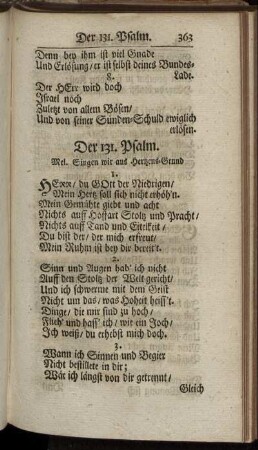 Der 131. Psalm. 363
Denn bey ihm ist viel Gnade
Und Erlösung/ er ist selbst deines Bundes-
Lade.
8.
Der HErr wird doch
Israel noch
Zuletz von allem Bösen/
Und von seiner Sünden-Schuld ewiglich
erlösen.
Der 131. Psalm.
Mel. Singen wir aus Hertzens-Grund
1.
HErr/ du GOtt der Niedrigen/
Mein Hertz soll sich nicht erhöh'n.
Mein Gemühte giebt und acht
Nichts auff Hoffart Stoltz und Pracht/
Nichts auff Tand und Eitelkeit/
Du bist der/ der mich erfreut/
Mein Ruhm ist bey dir bereit't.
2.
Sinn und Augen hab' ich nicht
Auff den Stoltz der Welt gericht/
Und ich schwerme mit dem Geist
Nicht um das/ was Hoheit heiss't.
Dinge/ die mir sind zu hoch/
Flieh' und hass' ich/ wie ein Joch/
Ich weiß/ du erhebst mich doch.
3.
Wann ich Sinnen und Begier
Nicht bestillete in dir;
Wär ich längst von dir getrennt/
Gleich